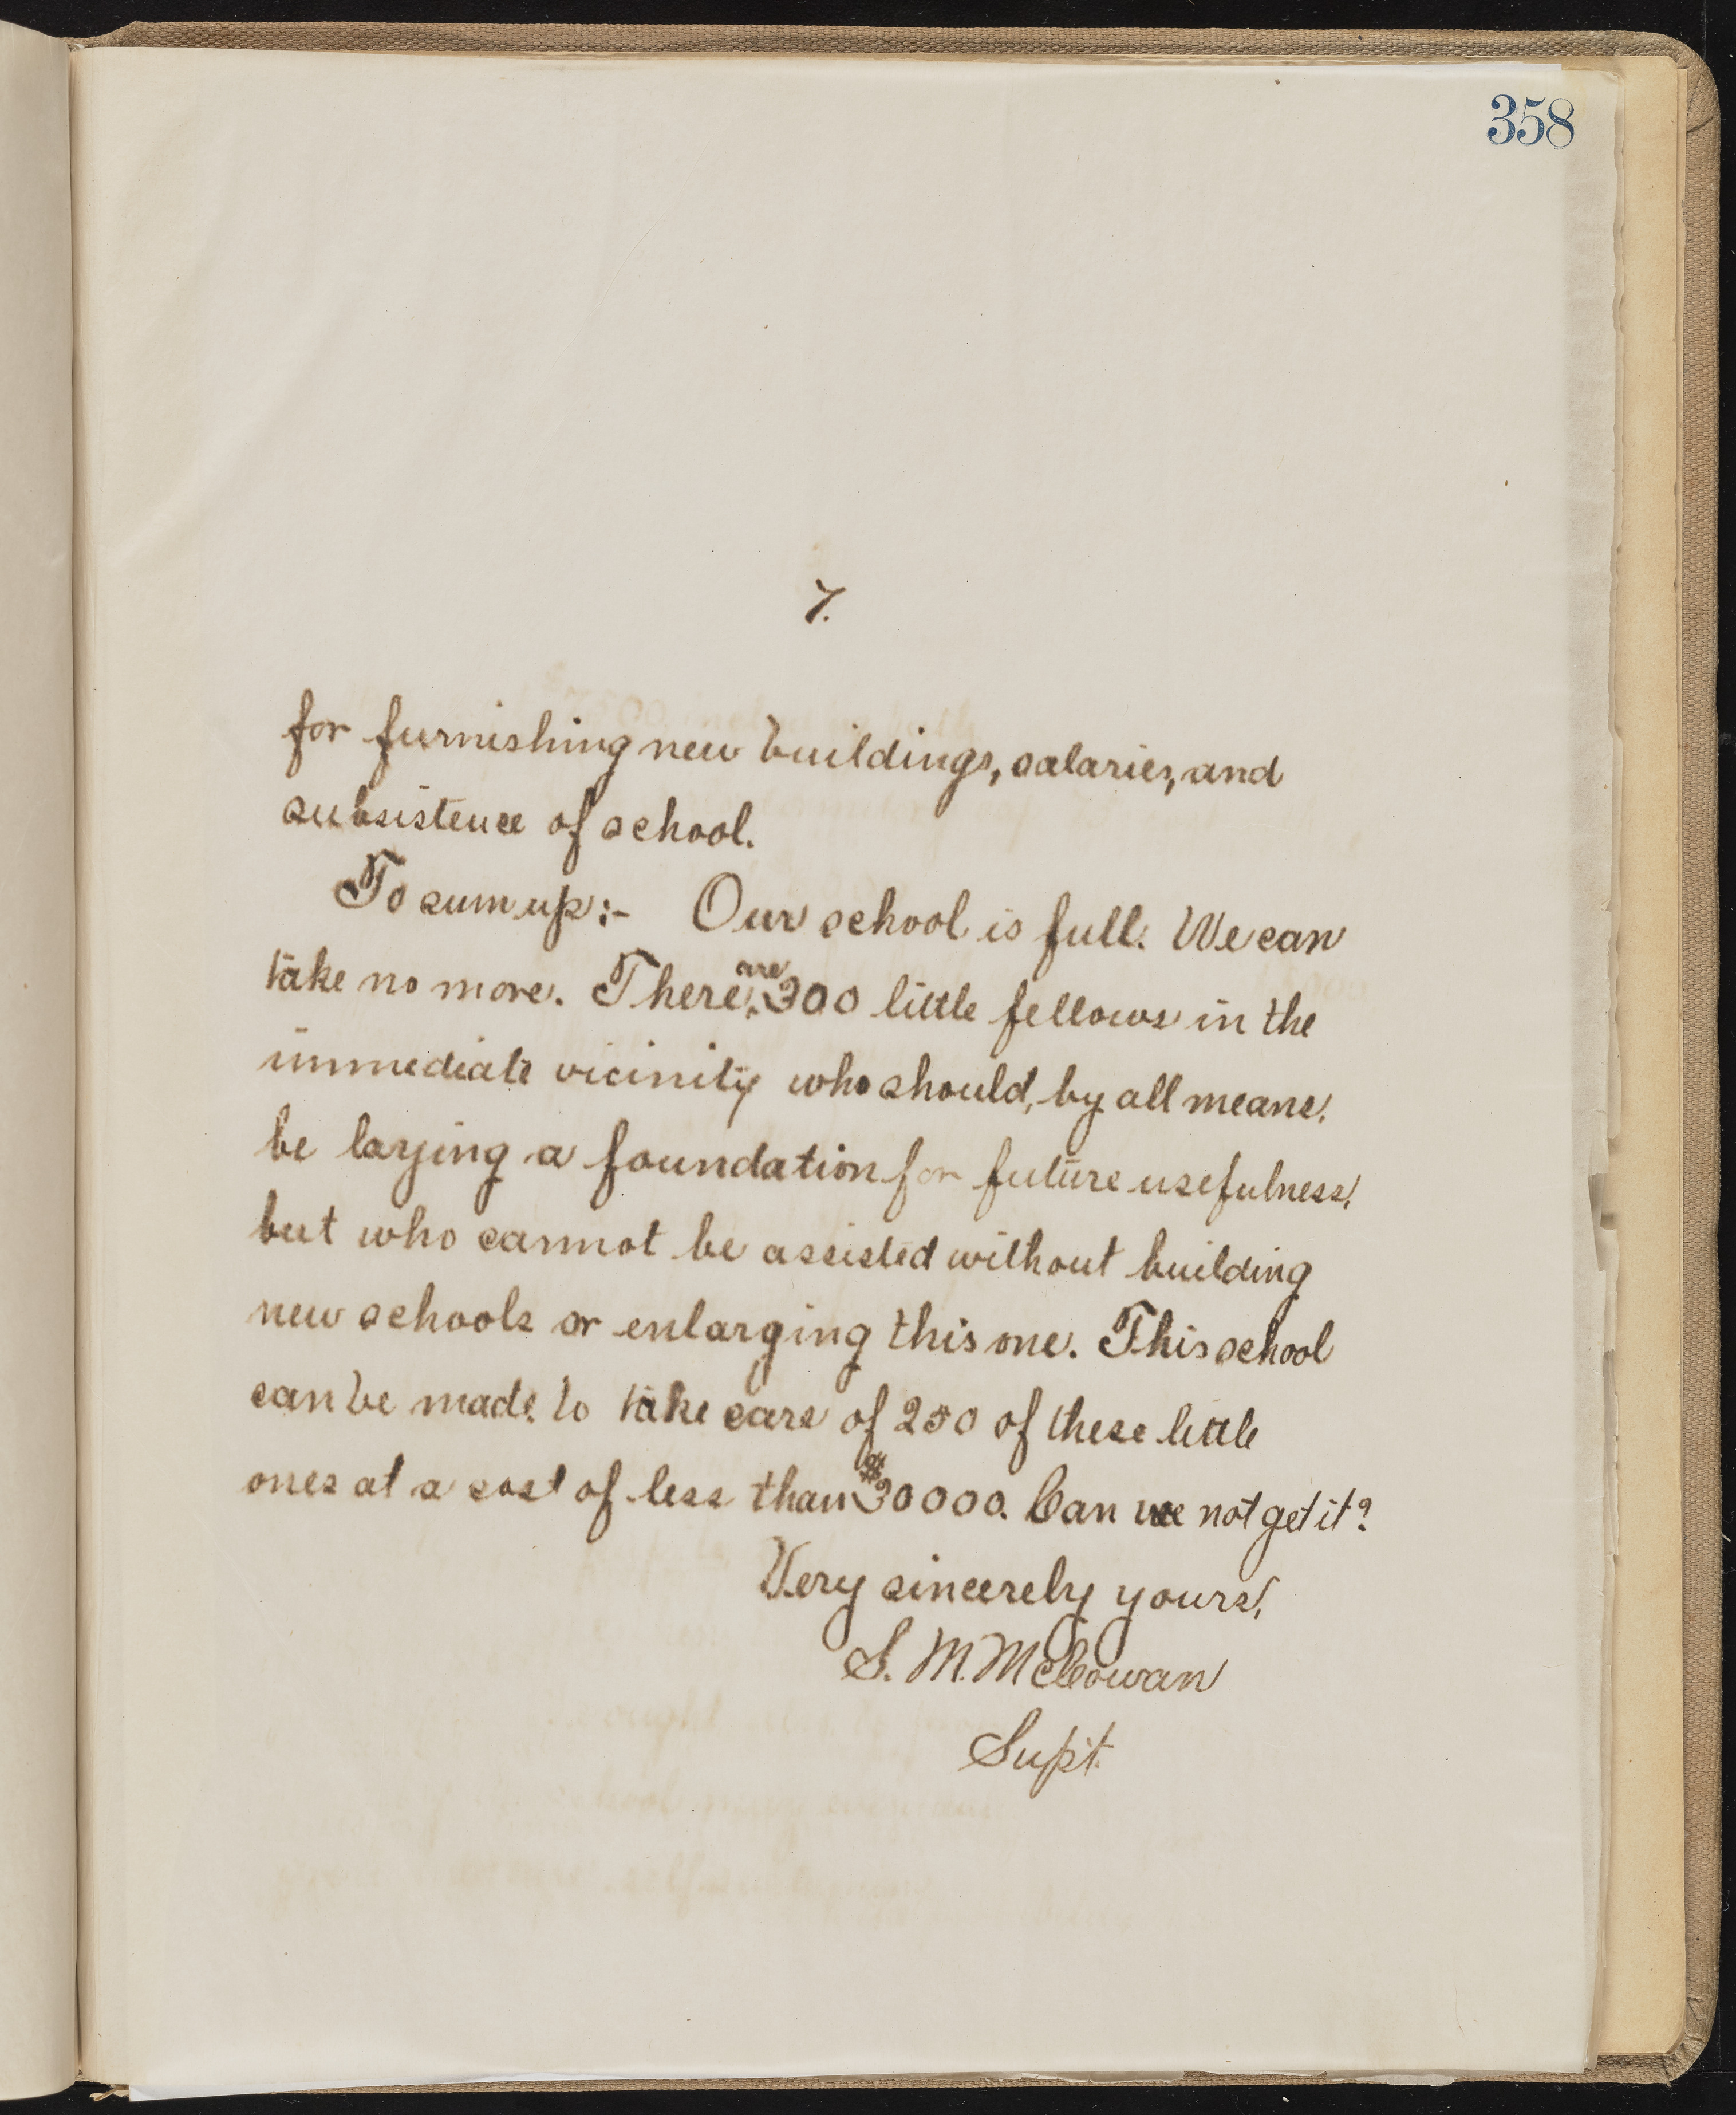 358
7.
for furnishing new buildings, salaries, and
subsistence of school.
To sum up:- Our school is full. We can
take no more. There are 300 little fellows in the
immediate vicinity who should, by all means,
be laying a foundation for future usefulness,
but who cannot be assisted without building
new schools or enlarging this one. This school
can be made to take care of 250 of these little
ones at a cost of less than $30000. Can we not get it?
Very sincerely yours,
S. M. McCowan
Supt.